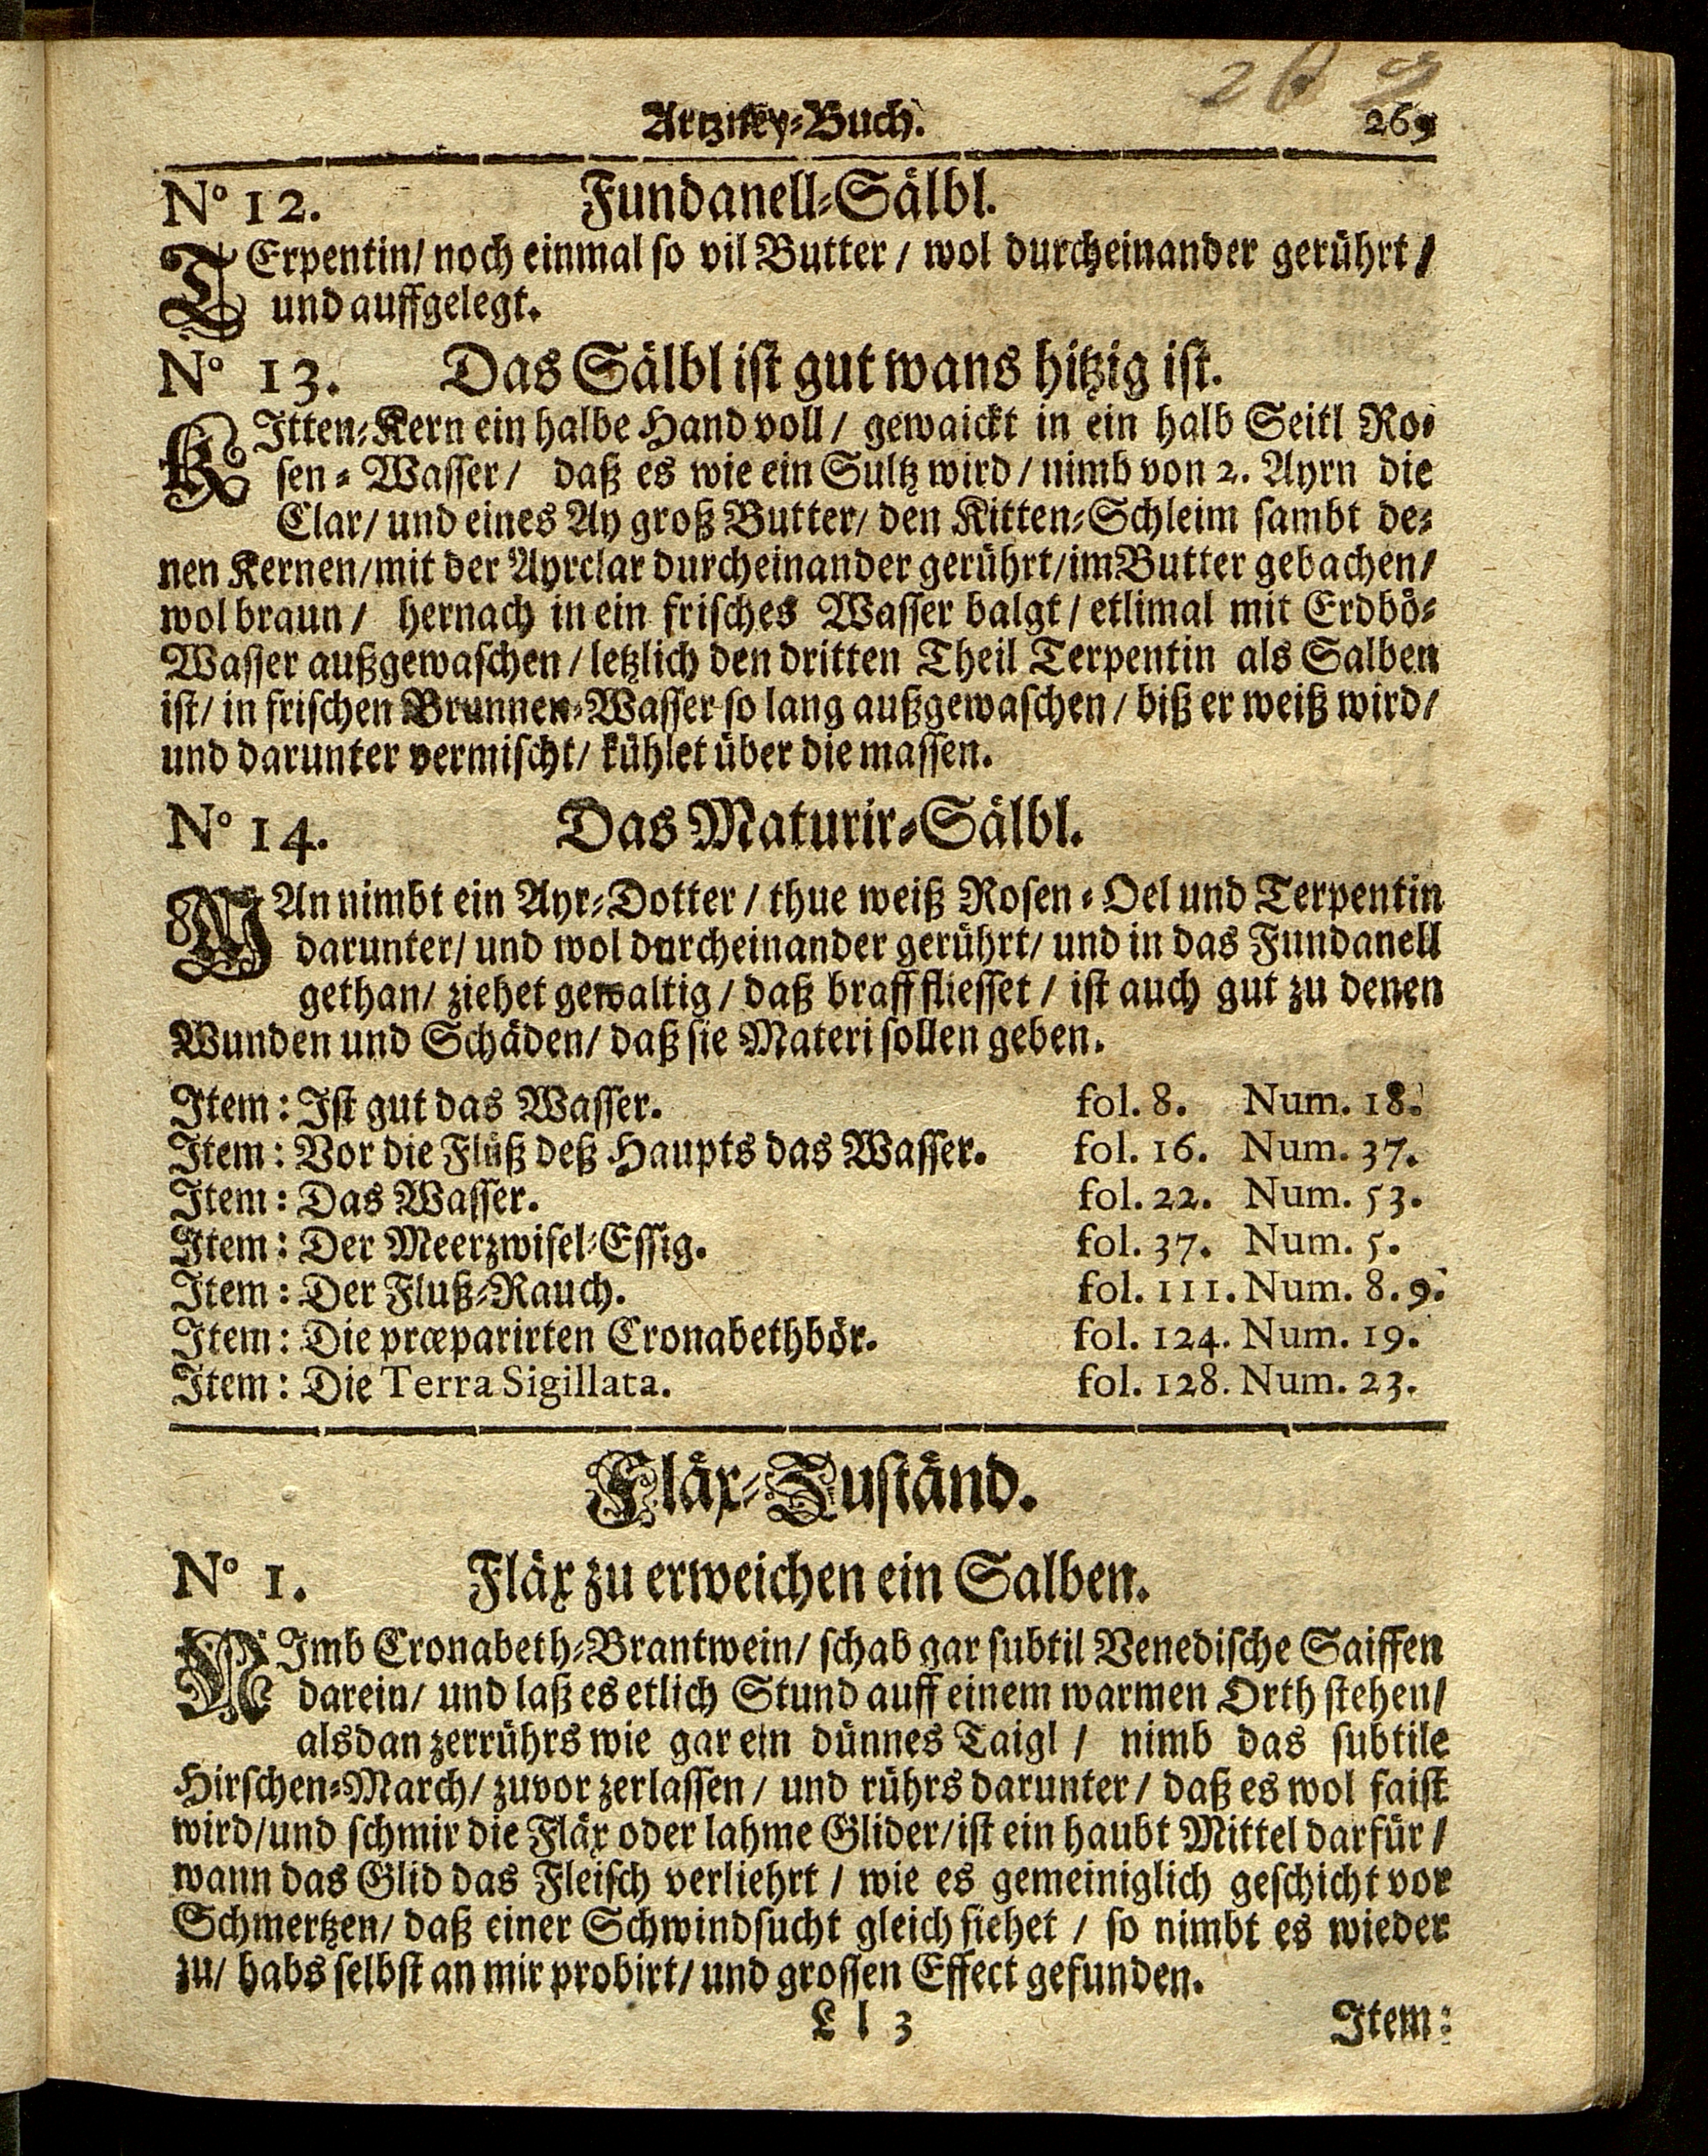 269
Artzney-Buch. 269
No 12. Fundanell-Sälbl.
TErpentin/ noch einmal so vil Butter / wol durcheinander gerührt /
und auffgelegt.
No 13. Das Sälbl ist gut wans hitzig ist.
KItten-Kern ein halbe Hand voll / gewaickt in ein halb Seitl Ro-
sen-Wasser / daß es wie ein Sultz wird / nimb von 2. Ayrn die
Clar/ und eines Ay groß Butter/ den Kitten-Schleim sambt de-
nen Kernen/mit der Ayrclar durcheinander gerührt/im Butter gebachen/
wol braun / hernach in ein frisches Wasser balgt / etlimal mit Erdbö-
Wasser außgewaschen / letzlich den dritten Theil Terpentin als Salben
ist/ in frischen Brunnen-Wasser so lang außgewaschen / biß er weiß wird/
und darunter vermischt/ kühlet über die massen.
No 14. Das Maturir-Sälbl.
MAn nimbt ein Ayr-Dotter / thue weiß Rosen-Oel und Terpentin
darunter/ und wol durcheinander gerührt/ und in das Fundanell
gethan/ ziehet gewaltig / daß braff fliesset / ist auch gut zu denen
Wunden und Schäden/ daß sie Materi sollen geben.
Item: Ist gut das Wasser. fol. 8. Num. 18.
Item: Vor die Flüß deß Haupts das Wasser. fol. 16. Num. 37.
Item: Das Wasser. fol. 22. Num. 53.
Item: Der Meerzwifel-Essig. fol. 37. Num. 5.
Item: Der Fluß-Rauch. fol. 111. Num. 8. 9.
Item: Die præparirten Cronabethbör. fol. 124. Num. 19.
Item: Die Terra Sigillata. fol. 128. Num. 23.
Fläx-Zuständ.
No 1. Fläx zu erweichen ein Salben.
NImb Cronabeth-Brantwein/ schab gar subtil Venedische Saiffen
darein/ und laß es etlich Stund auff einem warmen Orth stehen/
alsdan zerrührs wie gar ein dünnes Taigl / nimb das subtile
Hirschen-March/ zuvor zerlassen / und rührs darunter / daß es wol faist
wird/und schmir die Fläx oder lahme Glider/ist ein haubt Mittel darfür /
wann das Glid das Fleisch verliehrt / wie es gemeiniglich geschicht vor
Schmertzen/ daß einer Schwindsucht gleich siehet / so nimbt es wieder
zu/ habs selbst an mir probirt/ und grossen Effect gefunden.
L l 3 Item: